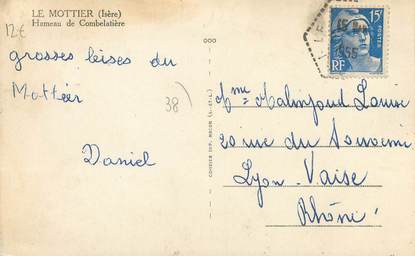 LE MOTTIER (Isère)
Hameau de Combelatière
12€
grosses bises du
Mottier
38)
Daniel
Mme Louise
20 rue du Souvenir
Lyon-Vaise
Rhône
15F
POSTES
RF
1955
COMBIER IMP. MACON